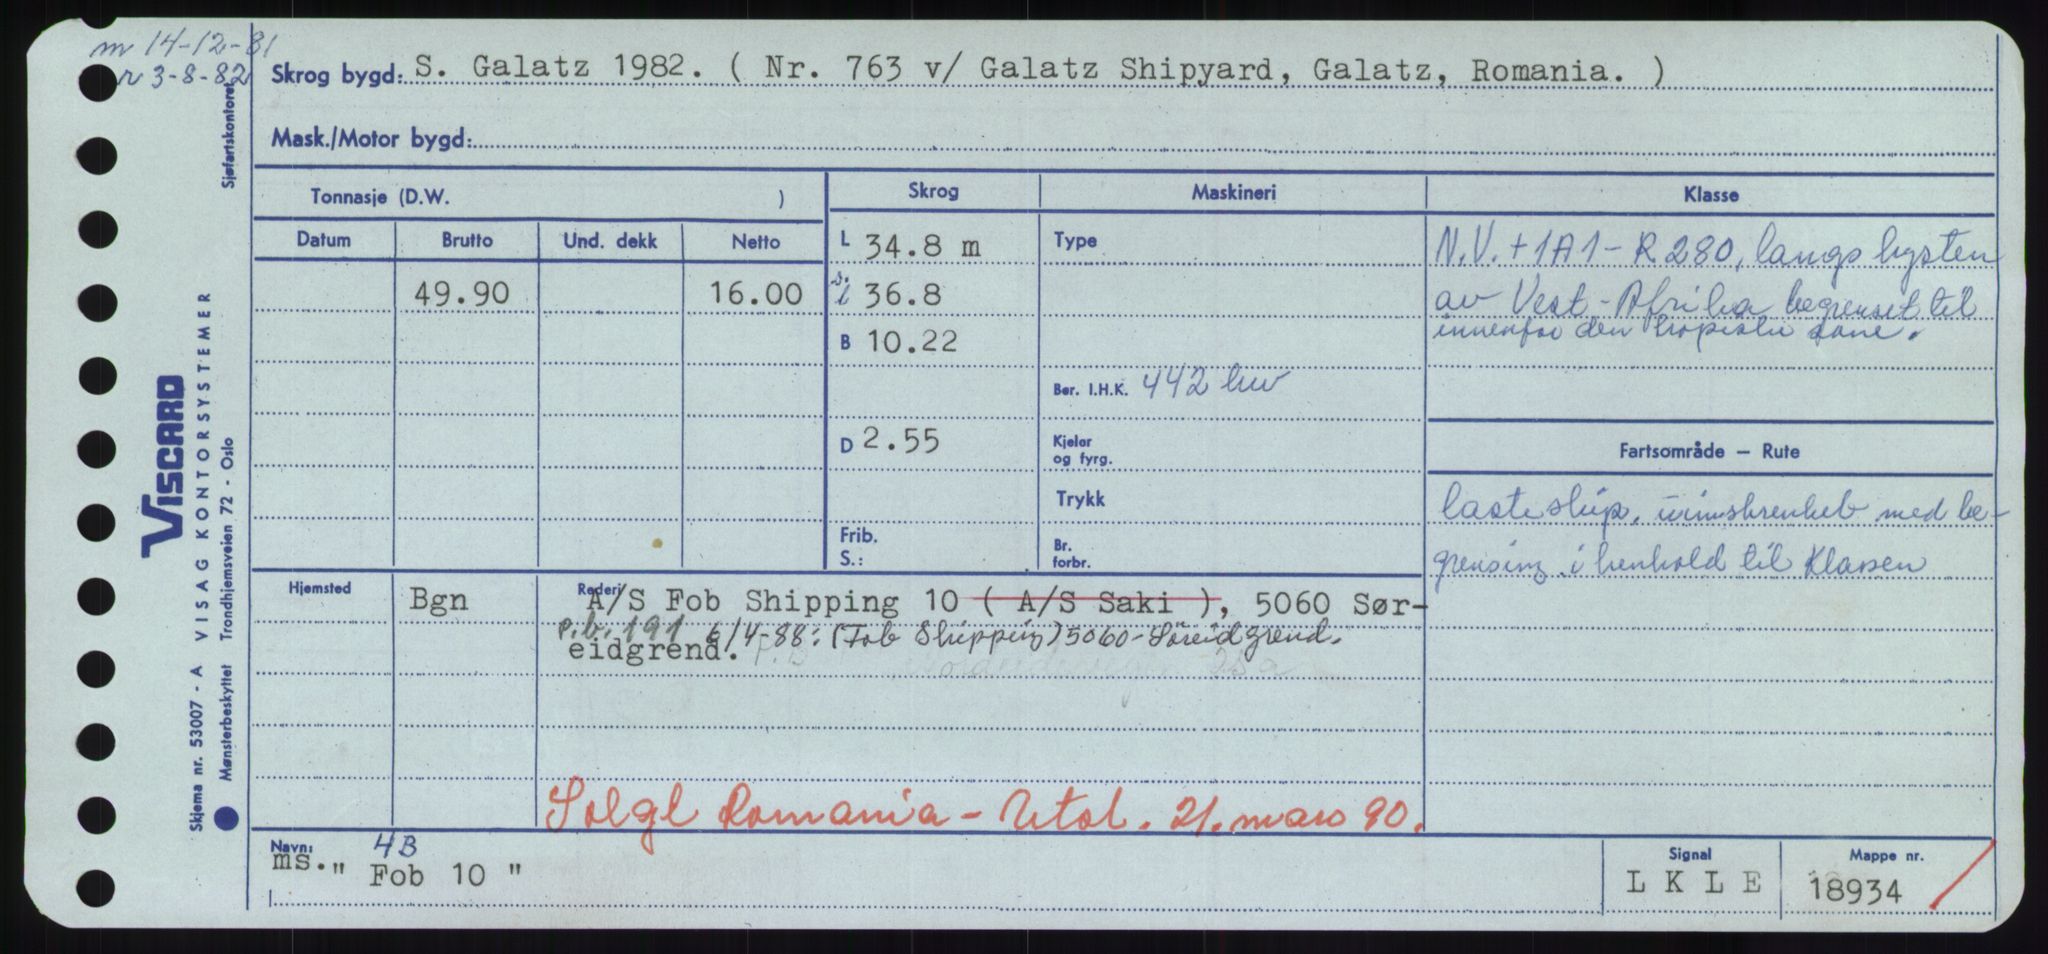 m 14-12-81
r 3-8-82
Skrog bygd: S. Galatz 1982. ( Nr. 763 v/ Galatz Shipyard, Galatz, Romania. )
Mask./Motor bygd:
Tonnasje (D.W. )
Skrog
Maskineri
Klasse
Datum
Brutto
Und. dekk
Netto
49.90
16.00
L 34.8 m
s.
l 36.8
B 10.22
D 2.55
Frib.
S.:
Type
Ber. I.H.K. 442 kw
Kjelor
og fyrg.
Trykk
Br.
forbr.
N.V. + 1A1 - R 280, langs kysten
av Vest-Afrika begrenset til
innenfor den tropiske sone.
Fartsområde — Rute
lasteskip, med be-
grensing i henhold til Klassen
Hjemsted
Bgn
Rederi
A/S Fob Shipping 10 ( A/S Saki ), 5060 Sør-
p.b. 191 6/4-88: (Fob Shipping) 5060-Söreidgrend.
eidgrend.
Solgt Romania - Utsl. 21. mars 90.
Navn: 4B
ms. " Fob 10 "
Signal
L K L E
Mappe nr.
18934
VISCARD
VISAG KONTORSYSTEMER
Skjema nr. 53007 - A
Mønsterbeskyttet
Trondhjemsveien 72 - Oslo
Sjøfartskontoret